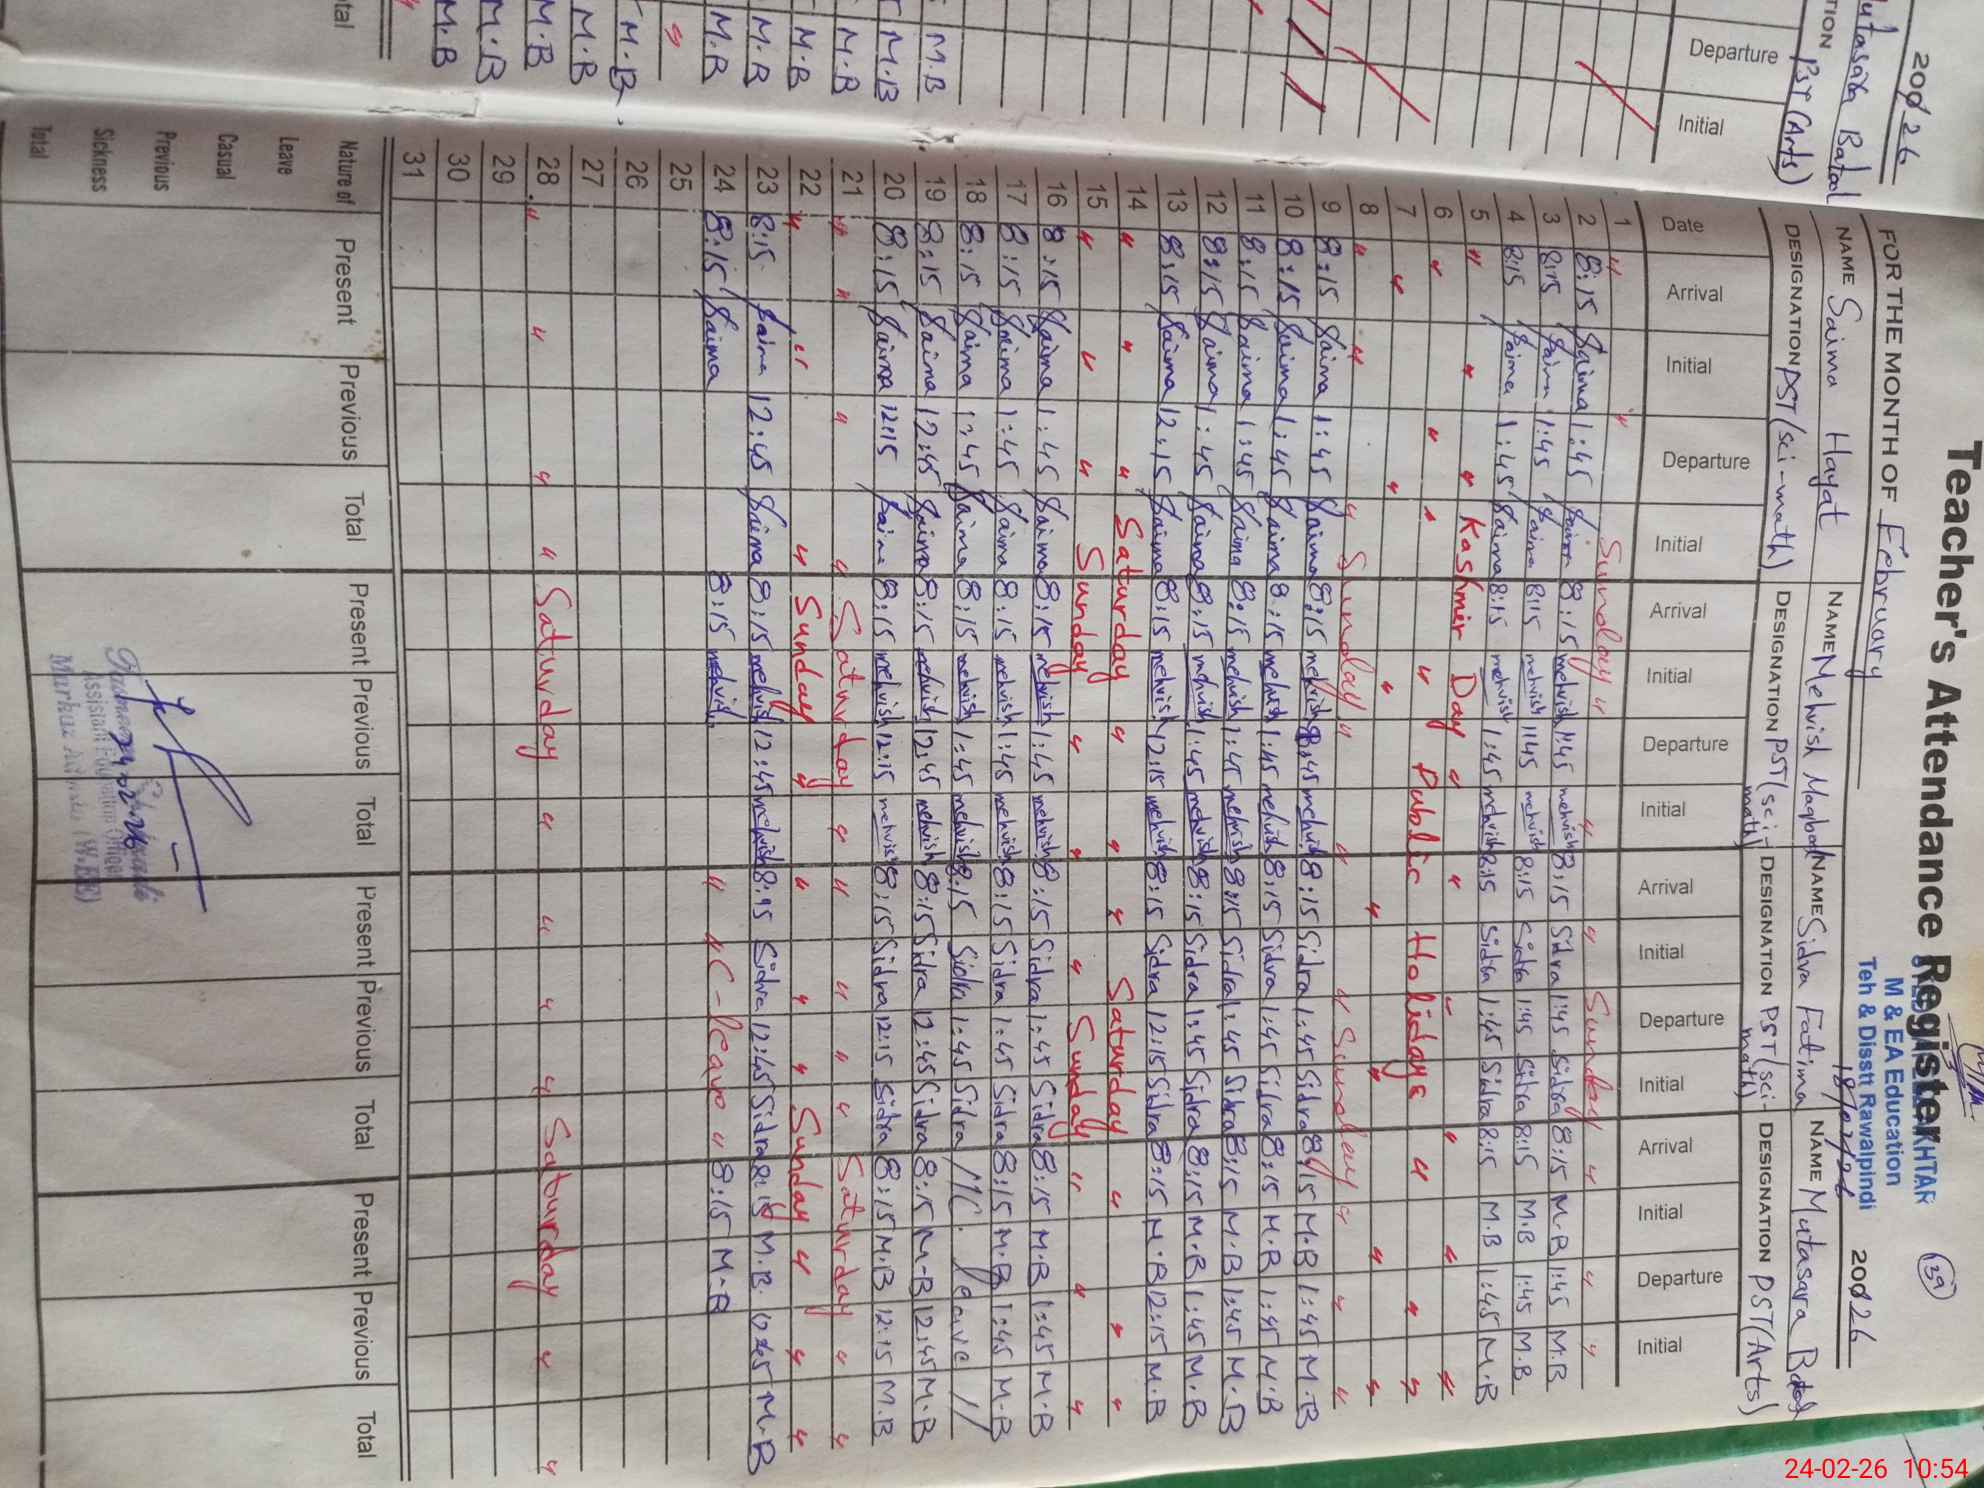 Teacher's Attendance Register
M & EA Education
Teh & Disstt Rawalpindi
18/02/26
39
FOR THE MONTH OF February 20026
NAME Saima Hayat NAME Mehvish Maqbool NAME Sidra Fatima NAME Mutasara Batool
DESIGNATION PST (sci-math) DESIGNATION PST (sci-math) DESIGNATION PST (sci-math) DESIGNATION PST (Arts)
Date Arrival Initial Departure Initial Arrival Initial Departure Initial Arrival Initial Departure Initial Arrival Initial Departure Initial
1 " " Sunday " " " Sunday " " "
2 8:15 Saima 1:45 Saima 8:15 mehvish 1:45 mehvish 8:15 Sidra 1:45 Sidra 8:15 M.B 1:45 M.B
3 8:15 Saima 1:45 Saima 8:15 mehvish 1:45 mehvish 8:15 Sidra 1:45 Sidra 8:15 M.B 1:45 M.B
4 8:15 Saima 1:45 Saima 8:15 mehvish 1:45 mehvish 8:15 Sidra 1:45 Sidra 8:15 M.B 1:45 M.B
5 " " " Kashmir Day " " " " " "
6 " " " " Public Holidays " " "
7 " " " " " " "
8 " " " Sunday " " " Sunday " " "
9 8:15 Saima 1:45 Saima 8:15 mehvish 8:45 mehvish 8:15 Sidra 1:45 Sidra 8:15 M.B 1:45 M.B
10 8:15 Saima 1:45 Saima 8:15 mehvish 1:45 mehvish 8:15 Sidra 1:45 Sidra 8:15 M.B 1:45 M.B
11 8:15 Saima 1:45 Saima 8:15 mehvish 1:45 mehvish 8:15 Sidra 1:45 Sidra 8:15 M.B 1:45 M.B
12 8:15 Saima 1:45 Saima 8:15 mehvish 1:45 mehvish 8:15 Sidra 1:45 Sidra 8:15 M.B 1:45 M.B
13 8:15 Saima 12:15 Saima 8:15 mehvish 12:15 mehvish 8:15 Sidra 12:15 Sidra 8:15 M.B 12:15 M.B
14 " " " Saturday " " " Saturday " " "
15 " " " Sunday " " " Sunday " " "
16 8:15 Saima 1:45 Saima 8:15 mehvish 1:45 mehvish 8:15 Sidra 1:45 Sidra 8:15 M.B 1:45 M.B
17 8:15 Saima 1:45 Saima 8:15 mehvish 1:45 mehvish 8:15 Sidra 1:45 Sidra 8:15 M.B 1:45 M.B
18 8:15 Saima 1:45 Saima 8:15 mehvish 1:45 mehvish 8:15 Sidra 1:45 Sidra // C. leave //
19 8:15 Saima 12:45 Saima 8:15 mehvish 12:45 mehvish 8:15 Sidra 12:45 Sidra 8:15 M.B 12:45 M.B
20 8:15 Saima 12:15 Saima 8:15 mehvish 12:15 mehvish 8:15 Sidra 12:15 Sidra 8:15 M.B 12:15 M.B
21 " " " " Saturday " " " " " Saturday " "
22 " " " Sunday " " " " Sunday " " "
23 8:15 Saima 12:45 Saima 8:15 mehvish 12:45 mehvish 8:15 Sidra 12:45 Sidra 8:15 M.B. 12:45 M.B
24 8:15 Saima 8:15 mehvish " " C-leave " 8:15 M-B
25
26
27
28 " " " " Saturday " " " " Saturday " "
29
30
31
Nature of Leave Present Previous Total Present Previous Total Present Previous Total Present Previous Total
Casual
Previous
Sickness
Total
20026
Mutasara Batool
PST (Arts)
Departure Initial
M.B
M.B
M.B
M.B
M.B
M.B
"
M.B
M.B
M.B
M.B
M.B
24-02-26 10:54